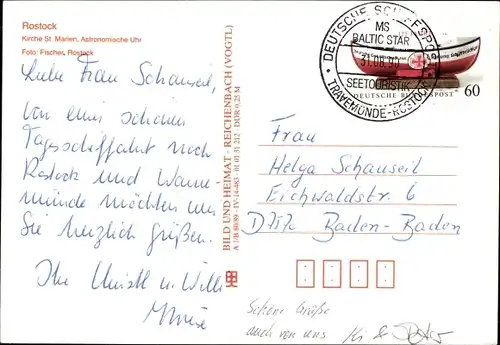 Rostock
Kirche St. Marien, Astronomische Uhr
Foto: Fischer, Rostock
Liebe Frau Schauseil,
von einer schönen
Tagesschiffahrt nach
Rostock und Warne-
münde möchten wir
Sie herzlich grüßen.
Ihr
u. Willi
BILD UND HEIMAT · REICHENBACH (VOGTL)
A 1/B 80/89 · IV-14-483 · 01 01 31 212 · DDR 0,25 M
DEUTSCHE SCHIFFSPOST
MS
BALTIC STAR
SEETOURISTIK
TRAVEMÜNDE-ROSTOCK
DEUTSCHE BUNDESPOST
60
Frau
Helga Schauseil
Eichwaldstr. 6
Baden-Baden
Schöne Grüße
auch von uns